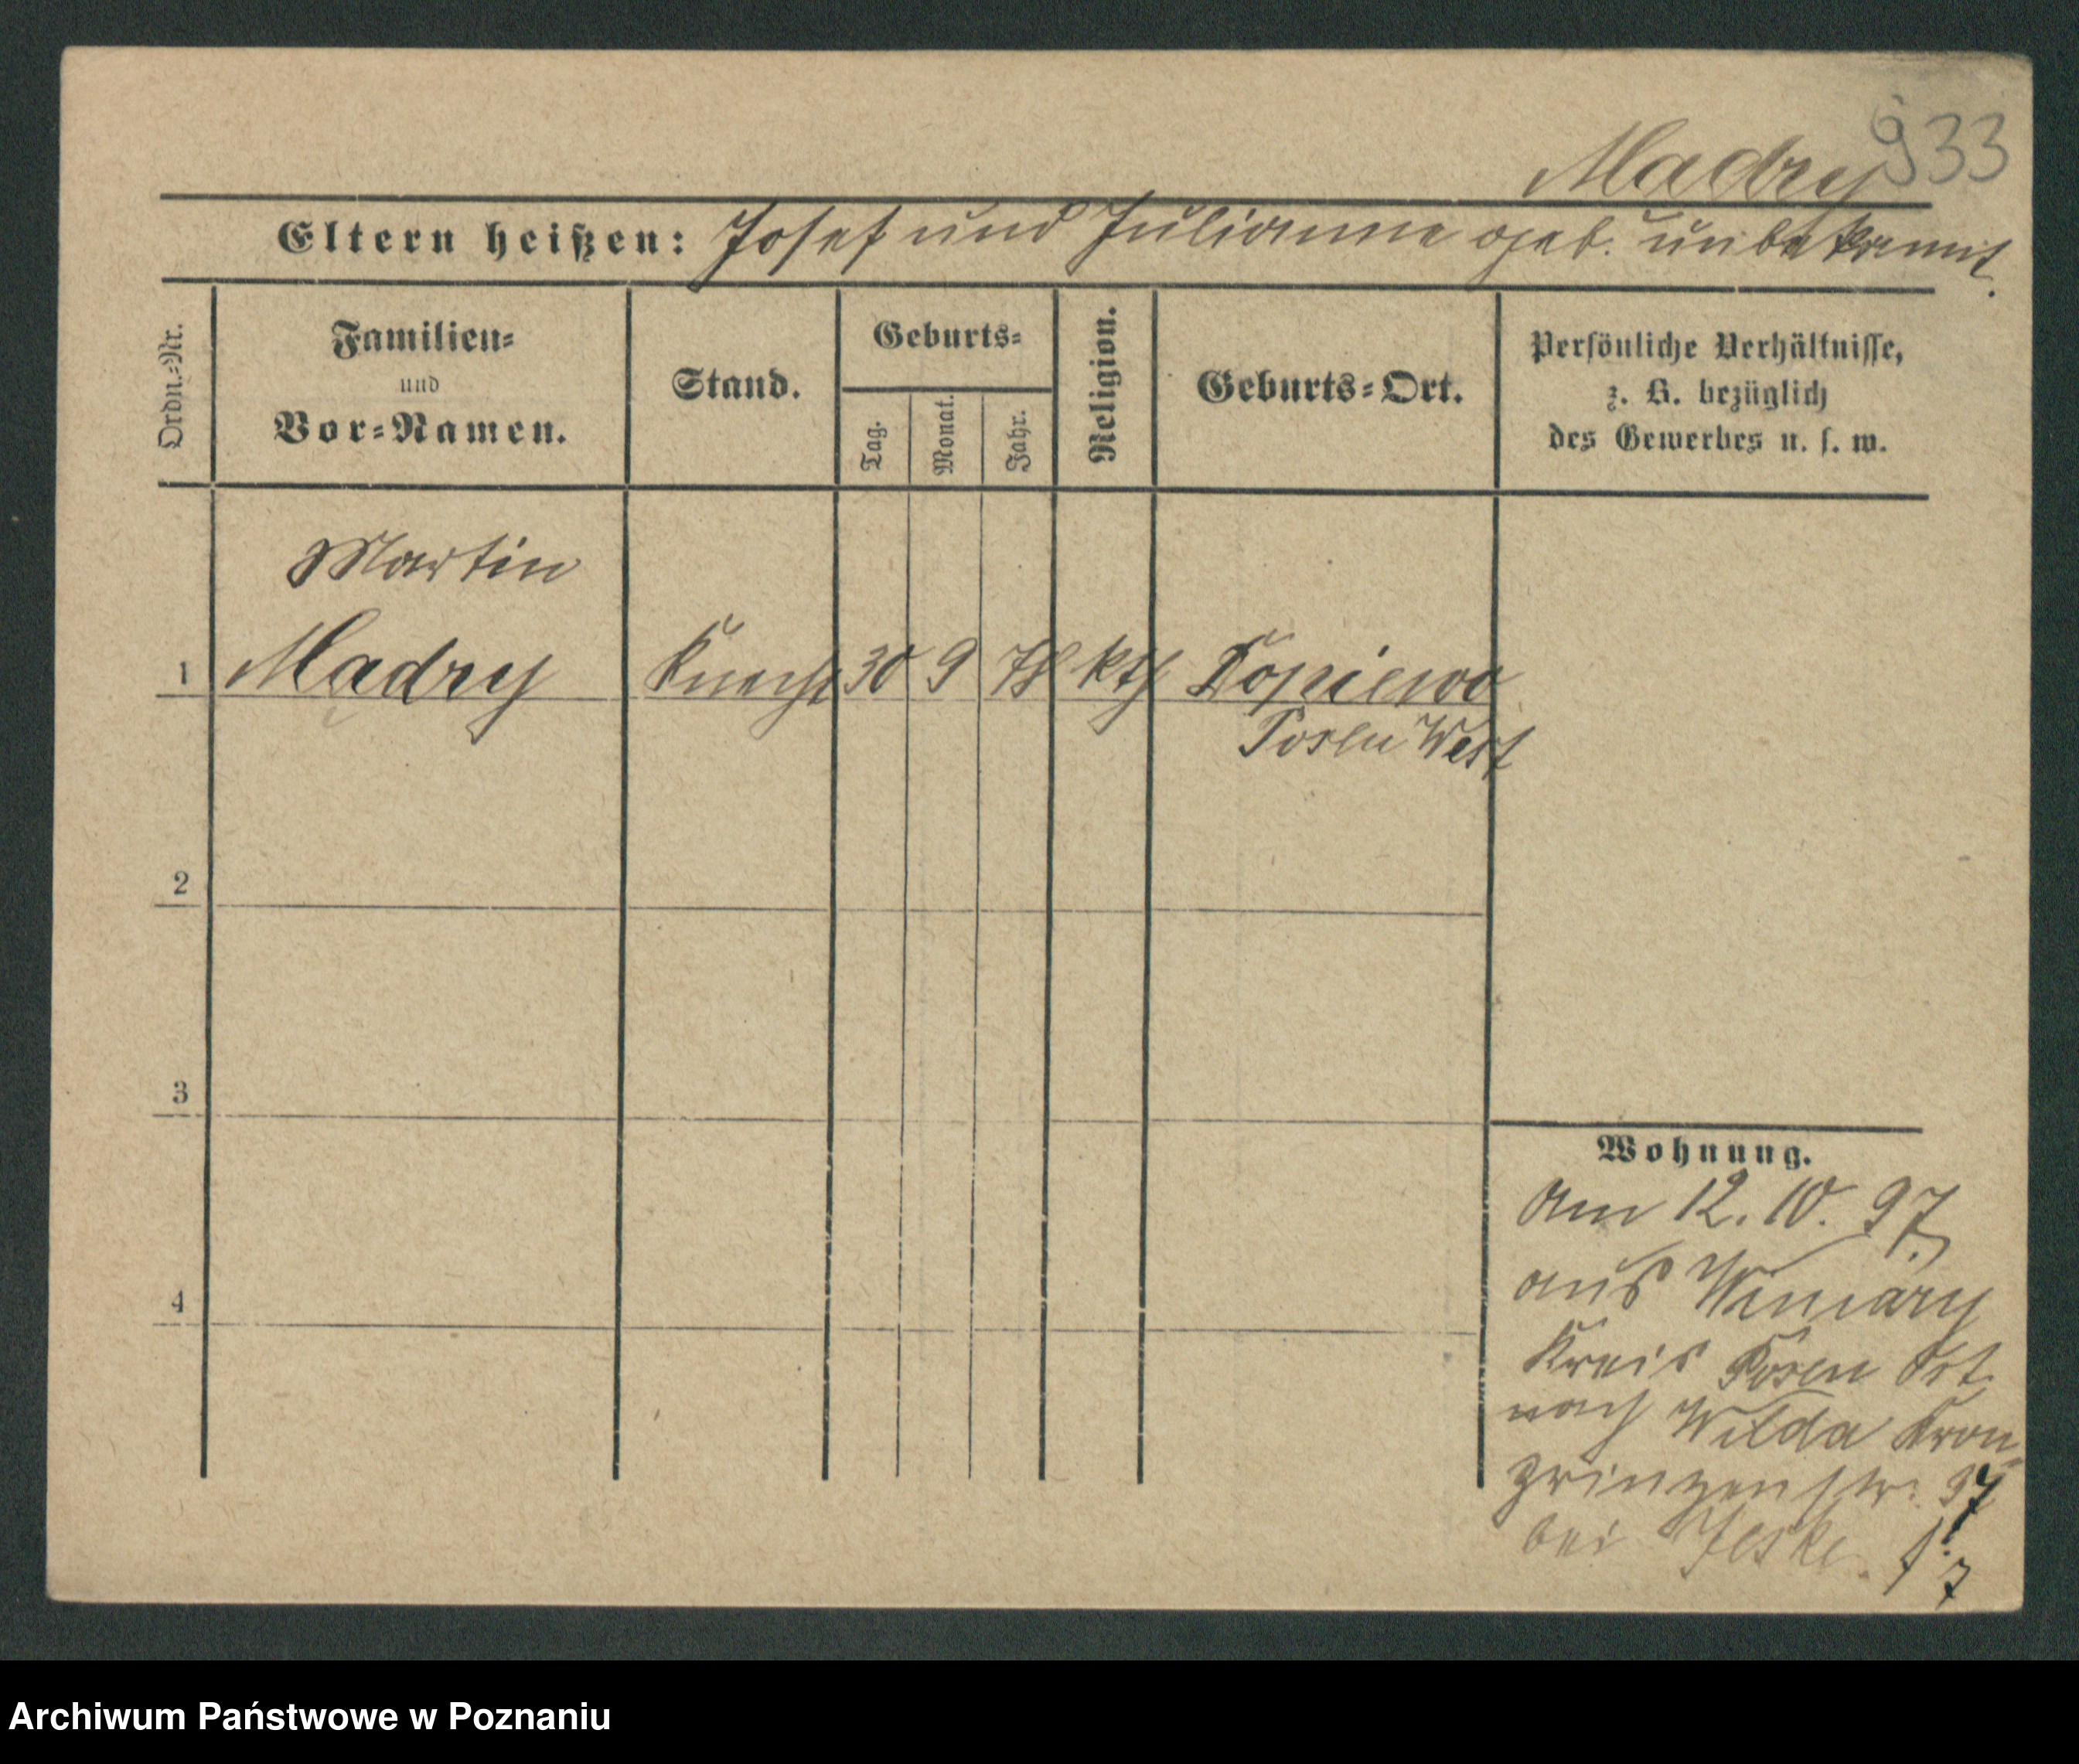 933
Madry
Eltern heißen: Josef und Julianne geb. unbekannt.
Ordn.-Nr.
Familien-
und
Vor-Namen.
Stand.
Geburts-
Tag.
Monat.
Jahr.
Religion.
Geburts-Ort.
Persönliche Verhältnisse,
z. B. bezüglich
des Gewerbes u. s. w.
Martin
1 Madry Knecht 30 9 78 kth Kopiewo
Posen West
2
3
4
Wohnung.
am 12. 10. 97.
aus Winiary
Kreis Posen Ost
nach Wilda Kron-
prinzenstr. 97
bei Jeske.
Archiwum Państwowe w Poznaniu